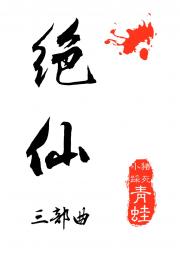 绝
仙
三部曲
小猪
踩死
青
蛙